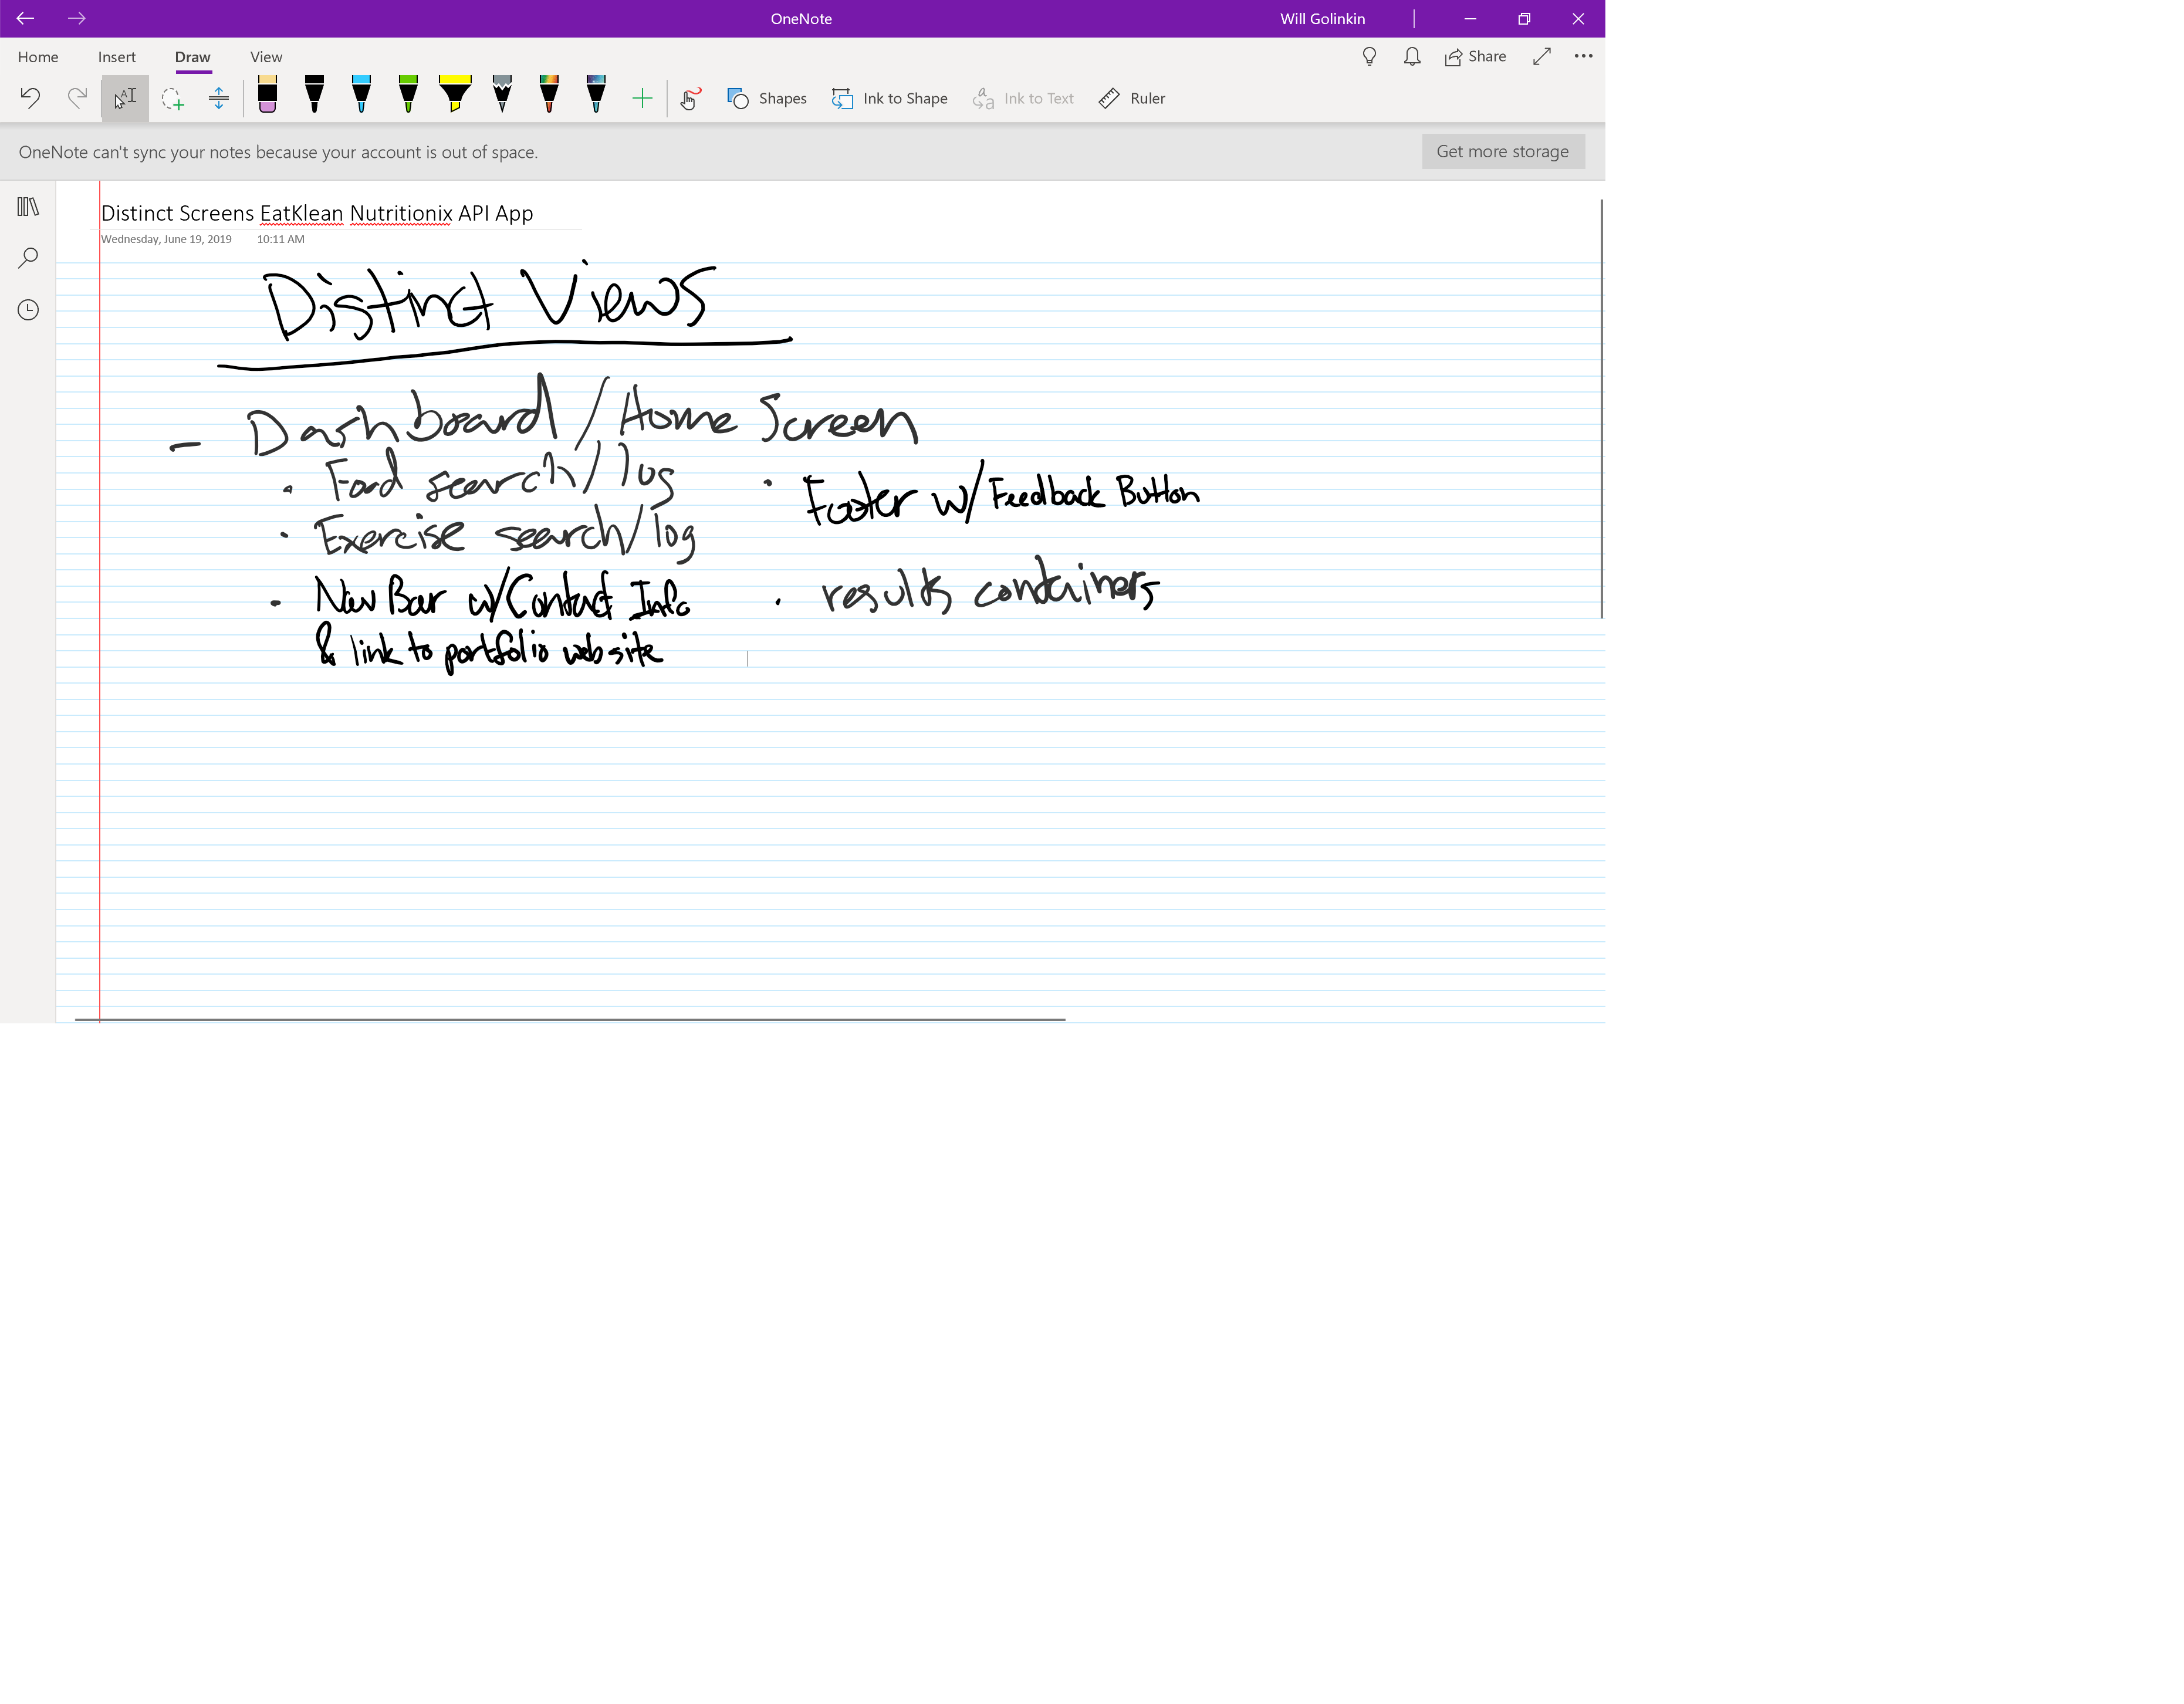 OneNote
Will Golinkin
Home Insert Draw View
Share
Shapes Ink to Shape Ink to Text Ruler
OneNote can't sync your notes because your account is out of space.
Get more storage
Distinct Screens EatKlean Nutritionix API App
Wednesday, June 19, 2019 10:11 AM
Distinct Views
- Dashboard / Home Screen
· Food search / log
· Exercise search / log
- Nav Bar w/ Contact Info
& link to portfolio website
· Footer w/ Feedback Button
· results containers